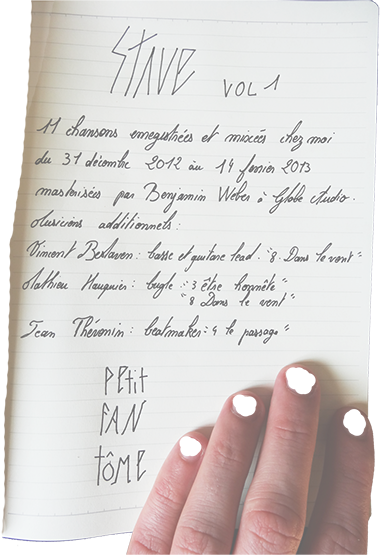 STAVE VOL 1
11 chansons enregistrées et mixées chez moi
du 31 décembre 2012 au 14 février 2013
masterisées par Benjamin Weber à Globe Studio.
Musiciens additionnels :
Vincent Bestaven : basse et guitare lead : "8. Dans le vent"
Mathieu : bugle : "3 être honnête"
"8 Dans le vent"
Jean Thévenin : beatmaker : "4 le passage"
PETIT
FAN
TÔME